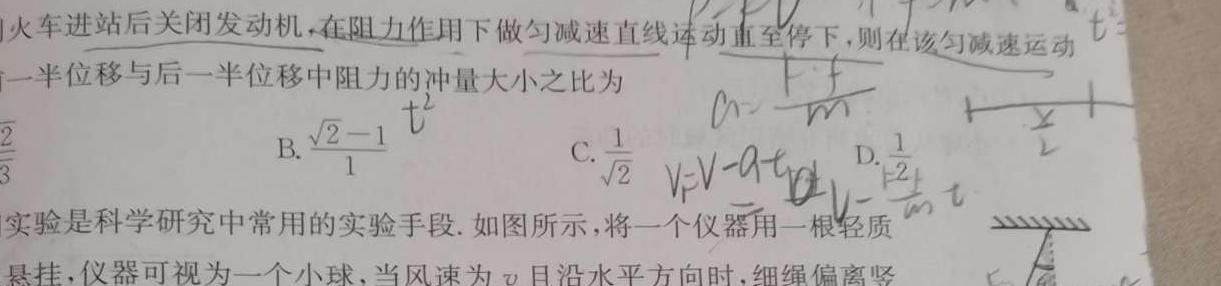 火车进站后关闭发动机,在阻力作用下做匀减速直线运动直至停下,则在该匀减速运动
一半位移与后一半位移中阻力的冲量大小之比为
2/3 B. (√2-1)/1 C. 1/√2 D. 1/2
实验是科学研究中常用的实验手段. 如图所示,将一个仪器用一根轻质
悬挂,仪器可视为一个小球,当风速为 v 且沿水平方向时,细绳偏离竖
t²
x/2